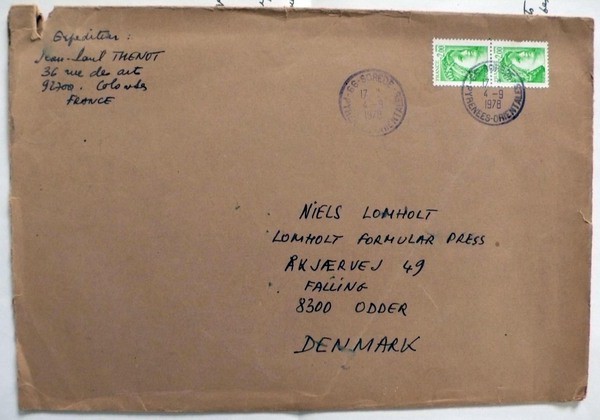 Expéditeur :
Jean-Paul THENOT
36 rue des arts
92700. Colombes
FRANCE
2,00
2,00
66-SOREDE
17 -
4 - 9
1978
4 - 9
1978
PYRENEES-ORIENTALES
NIELS LOMHOLT
LOMHOLT FORMULAR PRESS
ÅKJÆRVEJ 49
FALLING
8300 ODDER
DENMARK